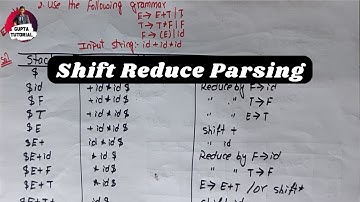 GUPTA
TUTORIAL
2. Use the following grammar
E → E+T | T
T → T*F | F
F → (E) | id
Input string:- id + id * id
Shift Reduce Parsing
Stack
$
$ id + id * id $ Reduce by F → id
$ F + id * id $ " " T → F
$ T + id * id $ " " E → T
$ E + id * id $ shift +
$ E+ id * id $ " id
$ E+id * id $ Reduce by F → id
$ E+F * id $ " " T → F
$ E+T * id $ E → E+T /or shift *
$ E+T* id $ shift id